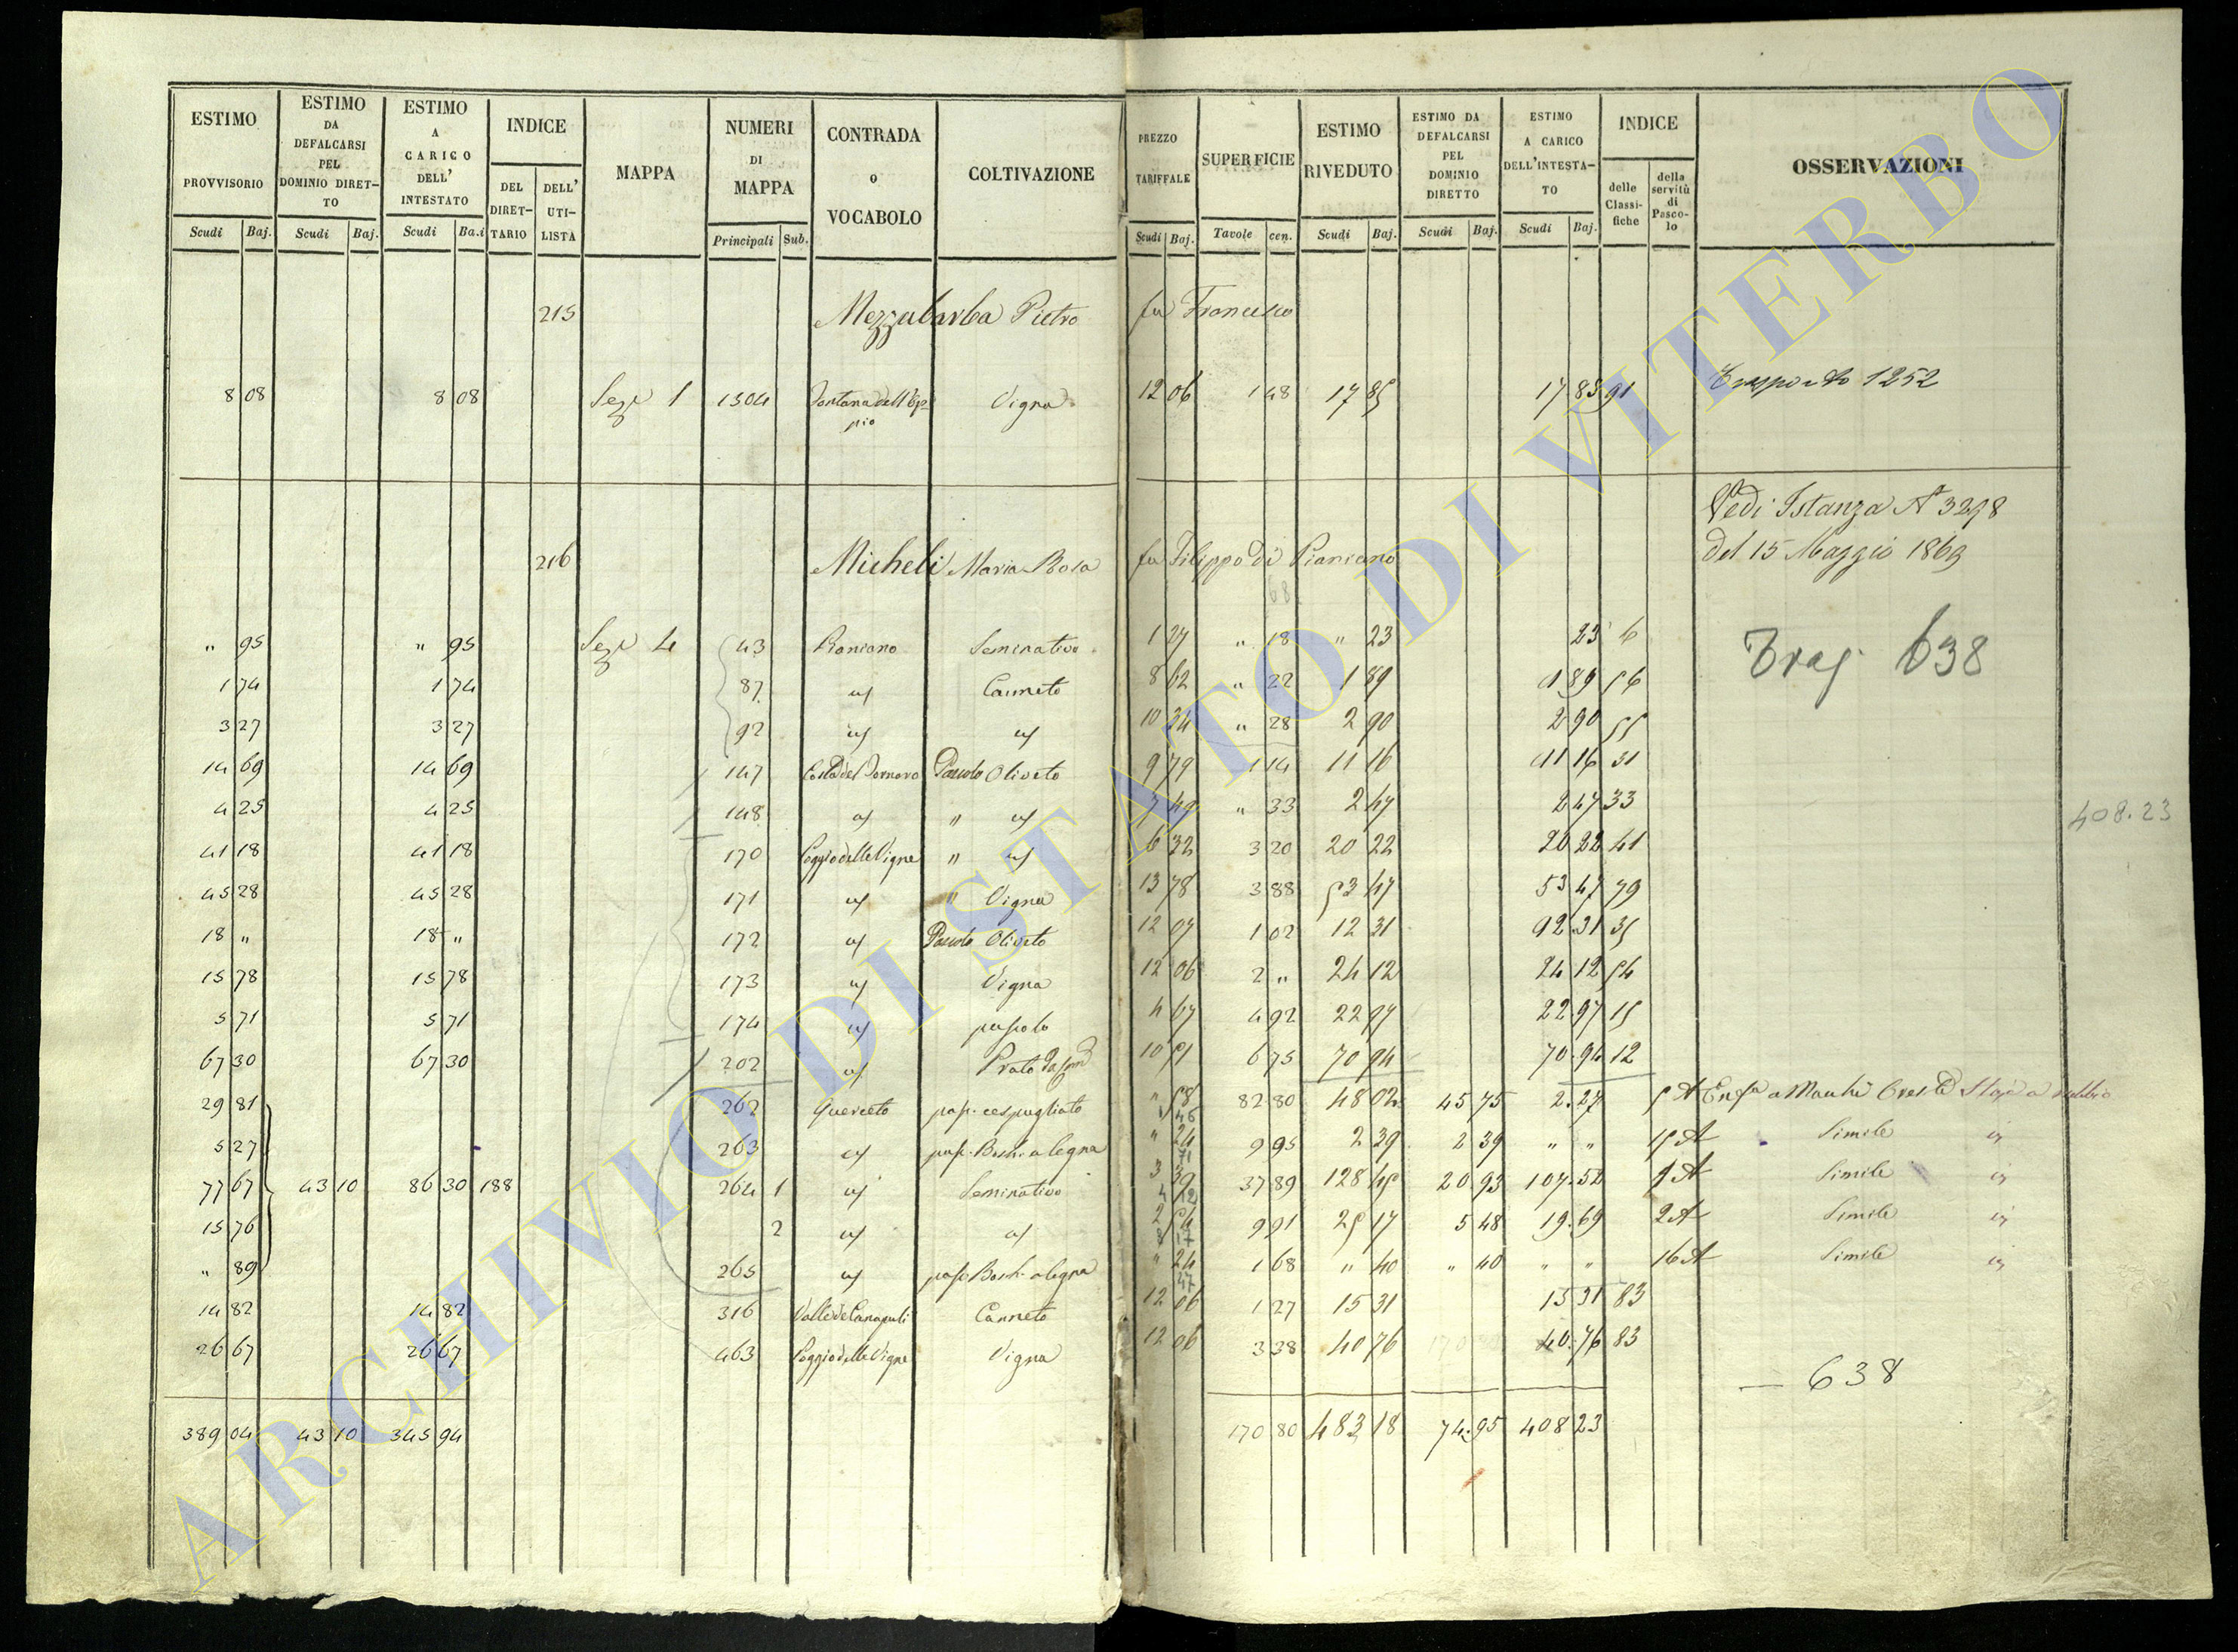 ESTIMO PROVVISORIO | ESTIMO DA DEFALCARSI PEL DOMINIO DIRETTO | ESTIMO A CARICO DELL' INTESTATO | INDICE | MAPPA | NUMERI DI MAPPA | CONTRADA o VOCABOLO | COLTIVAZIONE | PREZZO TARIFFALE | SUPERFICIE | ESTIMO RIVEDUTO | ESTIMO DA DEFALCARSI PEL DOMINIO DIRETTO | ESTIMO A CARICO DELL'INTESTATO | INDICE | OSSERVAZIONI
DEL DIRETTARIO | DELL' UTILISTA | delle Classifiche | della servitù di Pascolo
Scudi | Baj. | Scudi | Baj. | Scudi | Ba.i | Principali | Sub. | Scudi | Baj. | Tavole | cen. | Scudi | Baj. | Scudi | Baj. | Scudi | Baj.
215 Mezzabarba Pietro fu Francesco
8 08 | 8 08 | Sez. 1 | 1304 | Vigna | 12 06 | 1 48 | 17 85 | 17 85 | 91 | Trasporto 1252
Vedi Istanza N 3298
del 15 Maggio 1869
216 Micheli Maria Rosa fu Filippo di Pianiano
" 95 | " 95 | Sez. 4 | 43 | Pianiano | Seminativo | 1 27 | " 18 | " 23 | 23 | 6
Trasp. 638
1 74 | 1 74 | 87 | " | Canneto | 8 62 | " 22 | 1 89 | 1 89 | 56
3 27 | 3 27 | 92 | " | " | 10 34 | " 28 | 2 90 | 2 90 | 55
14 69 | 14 69 | 147 | Costa del Fornaro | Pascolo Oliveto | 9 79 | 1 14 | 11 16 | 11 16 | 31
4 25 | 4 25 | 148 | " | " " | 7 49 | " 33 | 2 47 | 2 47 | 33
408.23
41 18 | 41 18 | 170 | Poggio delle Vigne | " " | 6 32 | 3 20 | 20 22 | 20 22 | 41
45 28 | 45 28 | 171 | " | " Vigna | 13 78 | 3 88 | 53 47 | 53 47 | 79
18 " | 18 " | 172 | " | Pascolo Oliveto | 12 07 | 1 02 | 12 31 | 12 31 | 35
15 78 | 15 78 | 173 | " | Vigna | 12 06 | 2 " | 24 12 | 24 12 | 54
5 71 | 5 71 | 174 | " | pascolo | 4 67 | 4 92 | 22 97 | 22 97 | 15
67 30 | 67 30 | 202 | " | Prato | 10 51 | 6 75 | 70 94 | 70 94 | 12
29 81 | 262 | Querceto | pas. cespugliato | " 58 | 82 80 | 48 02 | 45 75 | 2.27 | 5 A
5 27 | 263 | " | pas. Bosch. a legna | " 24 | 9 95 | 2 39 | 2 39 | " " | 15 A | Simile
77 67 | 43 10 | 86 30 | 188 | 264 1 | " | Seminativo | 3 39 | 37 89 | 128 45 | 20 93 | 107.52 | 1 A | Simile
15 76 | 2 | " | " | 2 54 | 9 91 | 25 17 | 5 48 | 19.69 | 2 A | Simile
" 89 | 265 | " | pas. Bosch. a legna | " 24 | 1 68 | " 40 | " 40 | " " | 16 A | Simile
14 82 | 14 82 | 316 | Canneto | 12 06 | 1 27 | 15 31 | 15 31 | 83
26 67 | 26 67 | 463 | Poggio delle Vigne | Vigna | 12 06 | 3 38 | 40 76 | 40.76 | 83
638
389 04 | 43 10 | 345 94 | 170 80 | 483 18 | 74.95 | 408 23
ARCHIVIO DI STATO DI VITERBO